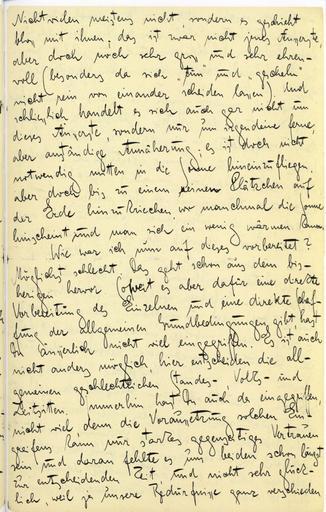 Nichtwielen meistens nicht, sondern es geschieht
bloss mit ihnen; das ist zwar nicht jenes Äusserste,
aber doch noch sehr gross und sehr ehren-
voll (besonders da sich "tun" und "geschehn"
nicht rein von einander scheiden lassen). Und
schliesslich handelt es sich auch gar nicht um
dieses Äusserste, sondern nur um irgendeine ferne,
aber anständige Annäherung; es ist doch nicht
notwendig mitten in die Sonne hineinzufliegen,
aber doch bis zu einem reinen Plätzchen auf
der Erde hinzukriechen wo manchmal die Sonne
hinscheint und man sich ein wenig wärmen kann.
Wie war ich nun auf dieses vorbereitet?
Möglichst schlecht. Das geht schon aus dem bis-
herigen hervor. Soweit es aber dafür eine direkte
Vorbereitung des Einzelnen und eine direkte Schaf-
fung der allgemeinen Grundbedingungen gibt hast
Du äusserlich nicht viel eingegriffen. Es ist auch
nicht anders möglich, hier entscheiden die all-
gemeinen geschlechtlichen Standes- Volks- und
Zeitsitten. Immerhin hast Du auch da eingegriffen,
nicht viel denn die Voraussetzung solchen Ein-
greifens kann nur starkes gegenseitiges Vertrauen
sein und daran fehlte es uns beiden schon längst
zur entscheidenden Zeit und nicht sehr glück-
lich, weil ja unsere Bedürfnisse ganz verschieden